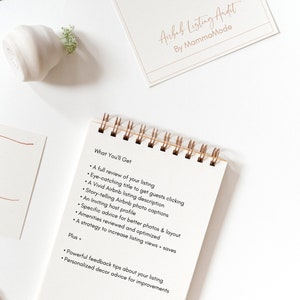 Airbnb Listing Audit
By MammaMode
What You'll Get
• A full review of your listing
• Eye-catching title to get guests clicking
• A Vivid Airbnb listing description
• Story-telling Airbnb photo captions
• An inviting host profile
• Specific advice for better photos & layout
• Amenities reviewed and optimized
• A strategy to increase listing views + saves
Plus +
• Powerful feedback tips about your listing
• Personalized decor advice for improvements